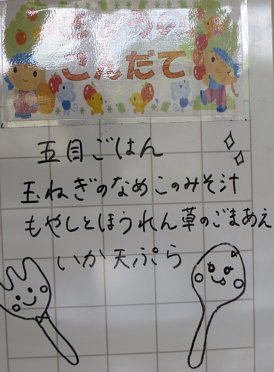 こんだて
五目ごはん
玉ねぎのなめこのみそ汁
もやしとほうれん草のごまあえ
いか天ぷら